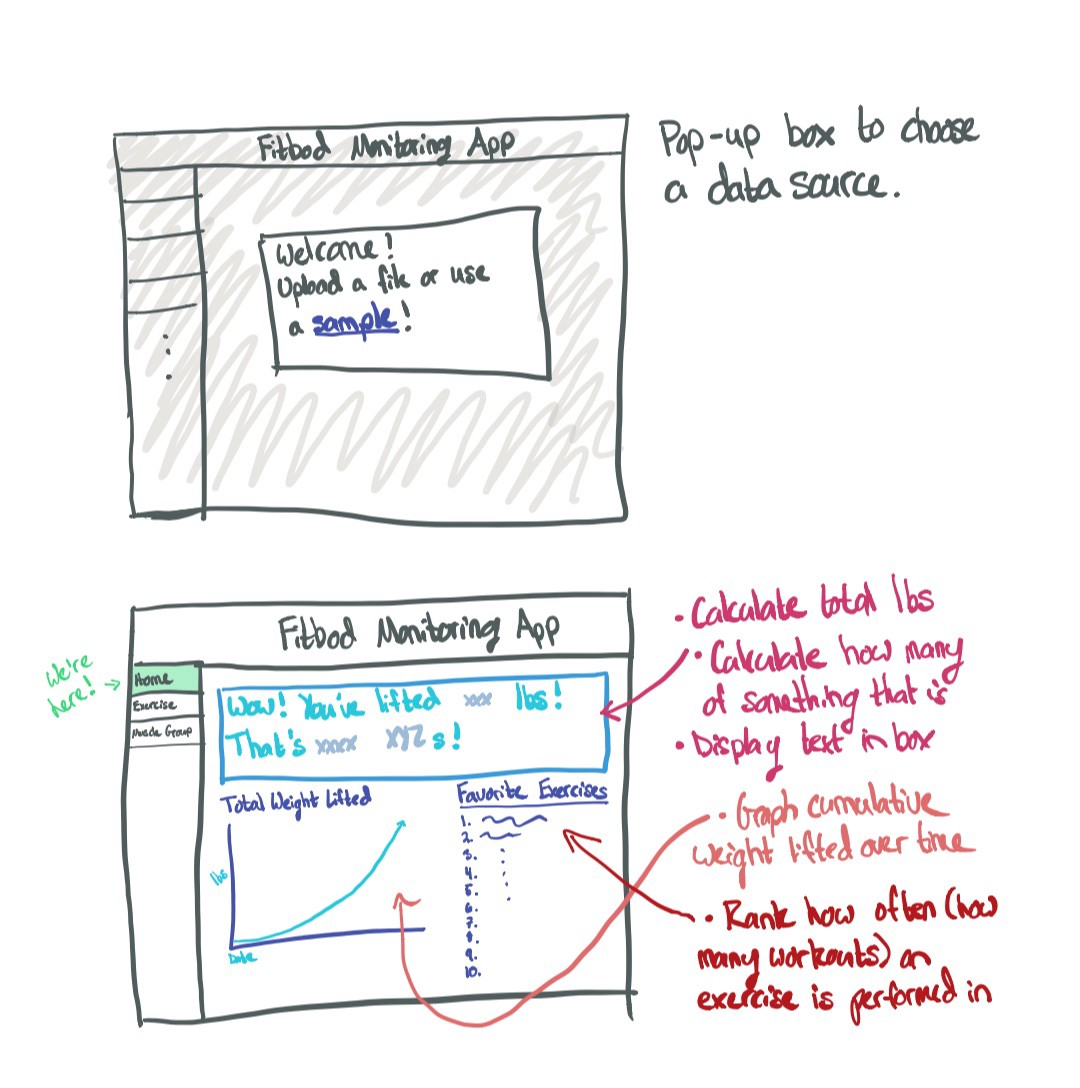 Fitbod Monitoring App
Welcome!
Upload a file or use
a sample!
Pop-up box to choose
a data source.
Fitbod Monitoring App
We're
here!
Home
Exercise
Muscle Group
Wow! You've lifted xxx lbs!
That's xxxx XYZ s!
Total Weight Lifted
lbs
Date
Favorite Exercises
1.
2.
3.
4.
5.
6.
7.
8.
9.
10.
• Calculate total lbs
• Calculate how many
of something that is
• Display text in box
• Graph cumulative
weight lifted over time
• Rank how often (how
many workouts) an
exercise is performed in